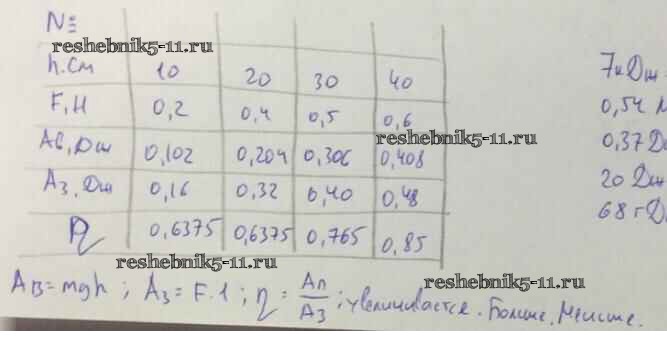 №
reshebnik5-11.ru
h.см 10 20 30 40
F,Н 0,2 0,4 0,5 0,6
reshebnik5-11.ru
Ав,Дж 0,102 0,204 0,306 0,408
Аз,Дж 0,16 0,32 0,40 0,48
η 0,6375 0,6375 0,765 0,85
reshebnik5-11.ru
reshebnik5-11.ru
Ав=mgh; Аз=F.l; η = Ап/Аз; увеличивается. Больше. Меньше.
7кДж
0,54 М
0,37 Дж
20 Дж
68 гД